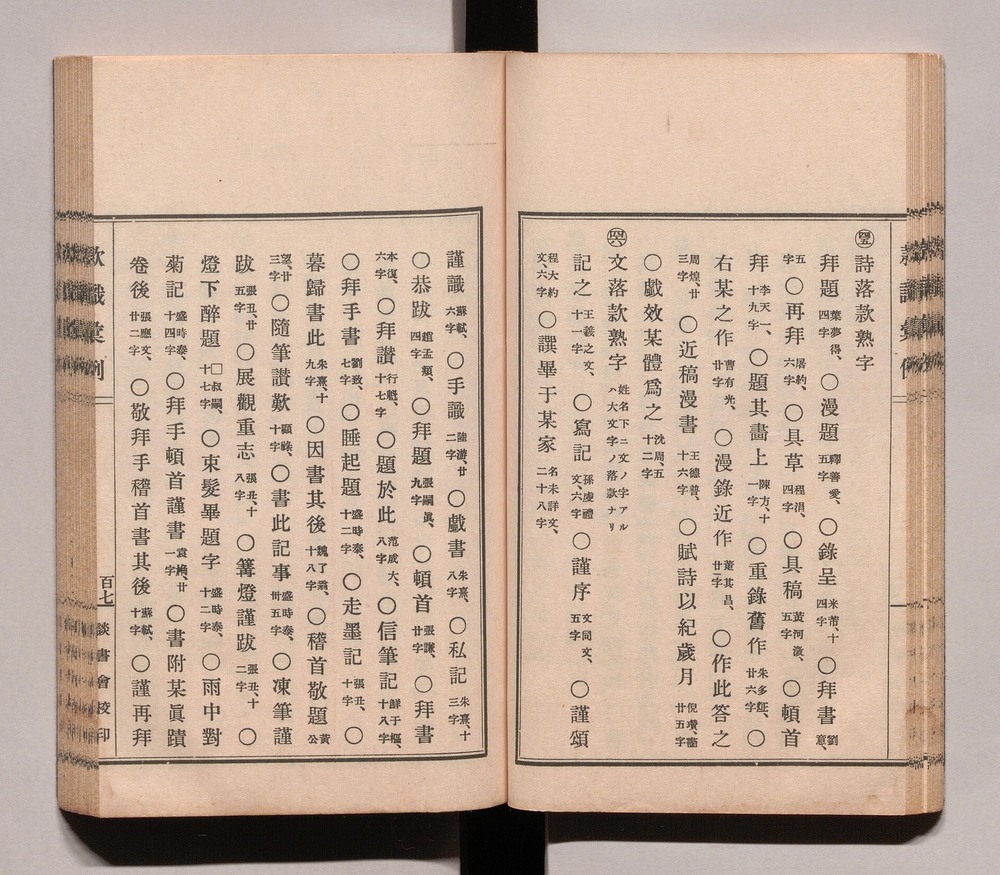 ㊺ 詩落款熟字
拜題 葉夢得、四字 ○漫題 釋善愛、五字 ○錄呈 米芾、十四字 ○拜書 劉意、
五字 ○再拜 屠約、六字 ○具草 程涓、四字 ○具稿 黃河澂、五字 ○頓首
拜 李天一、十九字 ○題其畫上 陳方、十一字 ○重錄舊作 朱多炡、廿六字 ○
右某之作 曹有光、廿字 ○漫錄近作 董其昌、廿二字 ○作此答之
周煌、廿三字 ○近稿漫書 王德普、十六字 ○賦詩以紀歲月 倪瓚、廿五字
○戲效某體爲之 沈周、五十二字
㊻ 文落款熟字 姓名下ニ文ノ字アルハ大文字ノ落款ナリ
記之 王羲之文、十一字 ○寫記 孫虔禮文、六字 ○謹序 文同文、五字 ○謹頌
程大約文、六字 ○譔畢于某家 名未詳文、二十八字
謹識 蘇軾、六字 ○手識 陸游、廿二字 ○戲書 朱熹、八字 ○私記 朱熹、十三字
○恭跋 趙孟頫、四字 ○拜題 張嗣眞、九字 ○頓首 張謙、廿字 ○拜書
本復、六字 ○拜讃 行魁、十七字 ○題於此 范成大、八字 ○信筆記 鮮于樞、十八字
○拜手書 劉致、七字 ○睡起題 盛時泰、十二字 ○走墨記 張丑、十字 ○
暮歸書此 朱熹、十九字 ○因書其後 魏了翁、十八字 ○稽首敬題 黃公
望、廿三字 ○隨筆讃歎 顧祿、十字 ○書此記事 盛時泰、卅五字 ○凍筆謹
跋 張丑、廿五字 ○展觀重志 張丑、十八字 ○篝燈謹跋 張丑、十二字 ○
燈下醉題 □叔嗣、十七字 ○束髮畢題字 盛時泰、十二字 ○雨中對
菊記 盛時泰、十四字 ○拜手頓首謹書 袁桷、廿一字 ○書附某眞蹟
卷後 張應文、廿二字 ○敬拜手稽首書其後 蘇軾、十字 ○謹再拜
百七
談書會校印